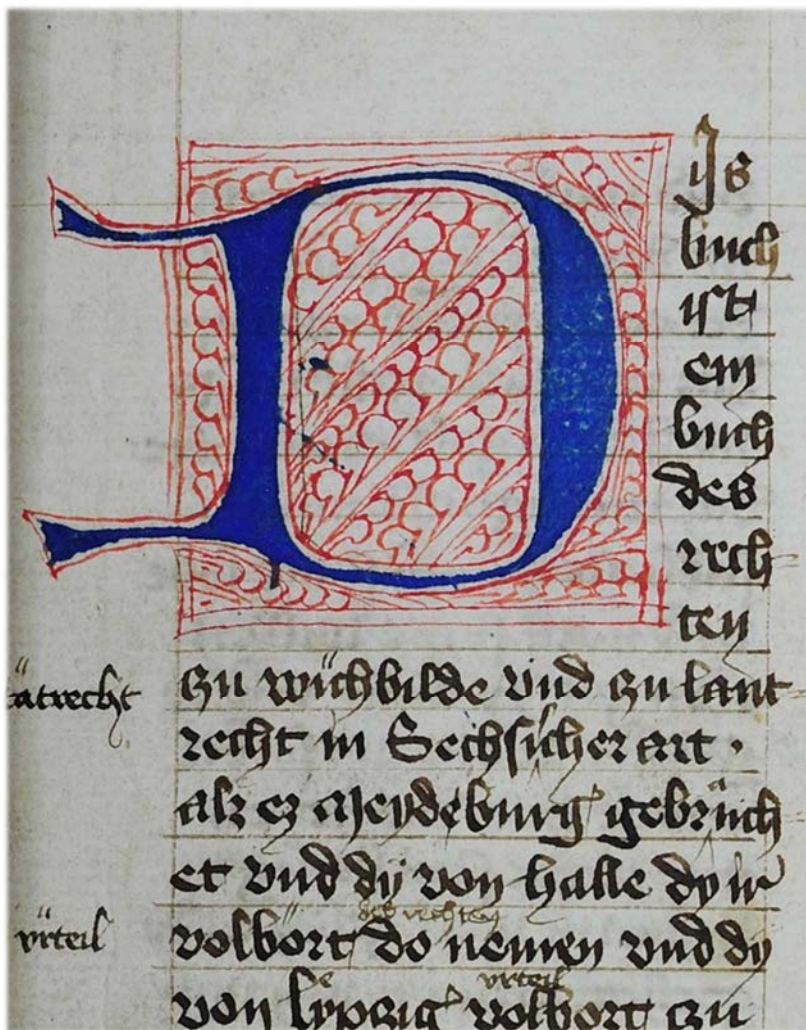 Dÿs
buch
ist
ein
buch
des
rech
ten
statrecht
czu wichbilde vnd czu lant
recht in Sechsischer art ·
alz ez Meydeburg gebruch
et vnd dÿ von halle dy ir
vrteil
des rechten
volbort do nemen vnd dÿ
vrteil
von lypczig volbort czu